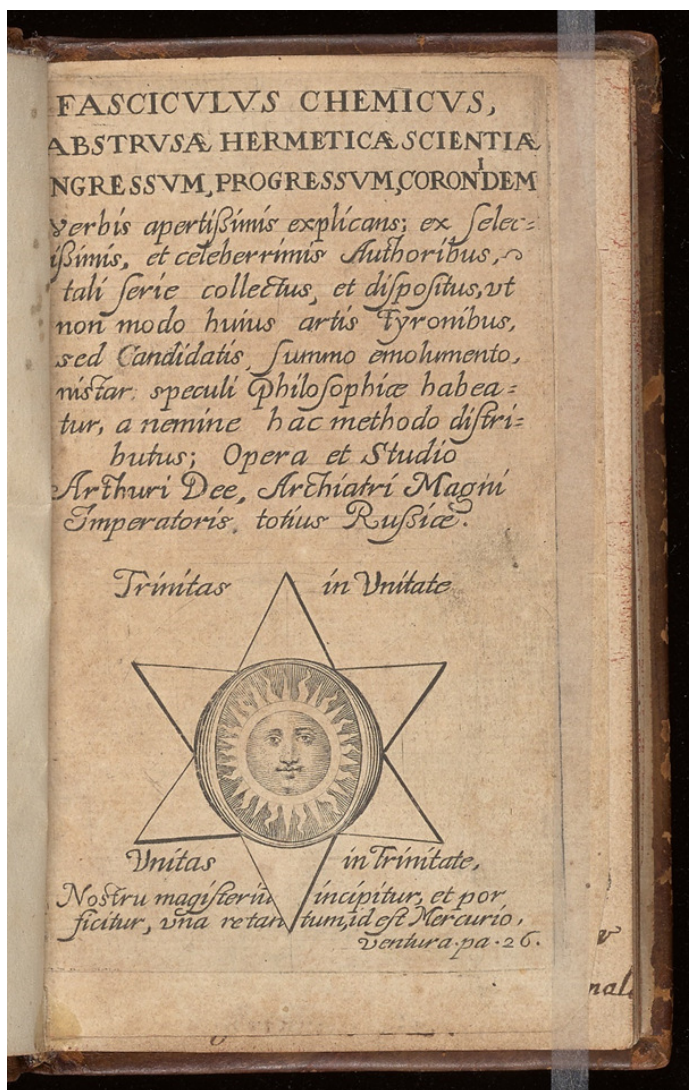 FASCICVLVS CHEMICVS,
ABSTRVSÆ HERMETICÆ SCIENTIÆ
NGRESSVM, PROGRESSVM, CORONIDEM
verbis apertißimis explicans; ex ſelec=
ißimis, et celeberrimis Authoribus,
tali ſerie collectus, et diſpoſitus, vt
non modo huius artis Tyronibus,
sed Candidatis, ſummo emolumento,
nistar speculi Philoſophiæ habea=
tur, a nemine hac methodo diſtri=
butus; Opera et Studio
Arthuri Dee, Archiatri Magni
Imperatoris, totius Rußiæ.
Trinitas in Vnitate
Vnitas in Trinitate,
Noſtru magiſteriũ incipitur, et por
ficitur, vna re tan tum, id eſt Mercurio,
ventura. pa. 26.
v
nal